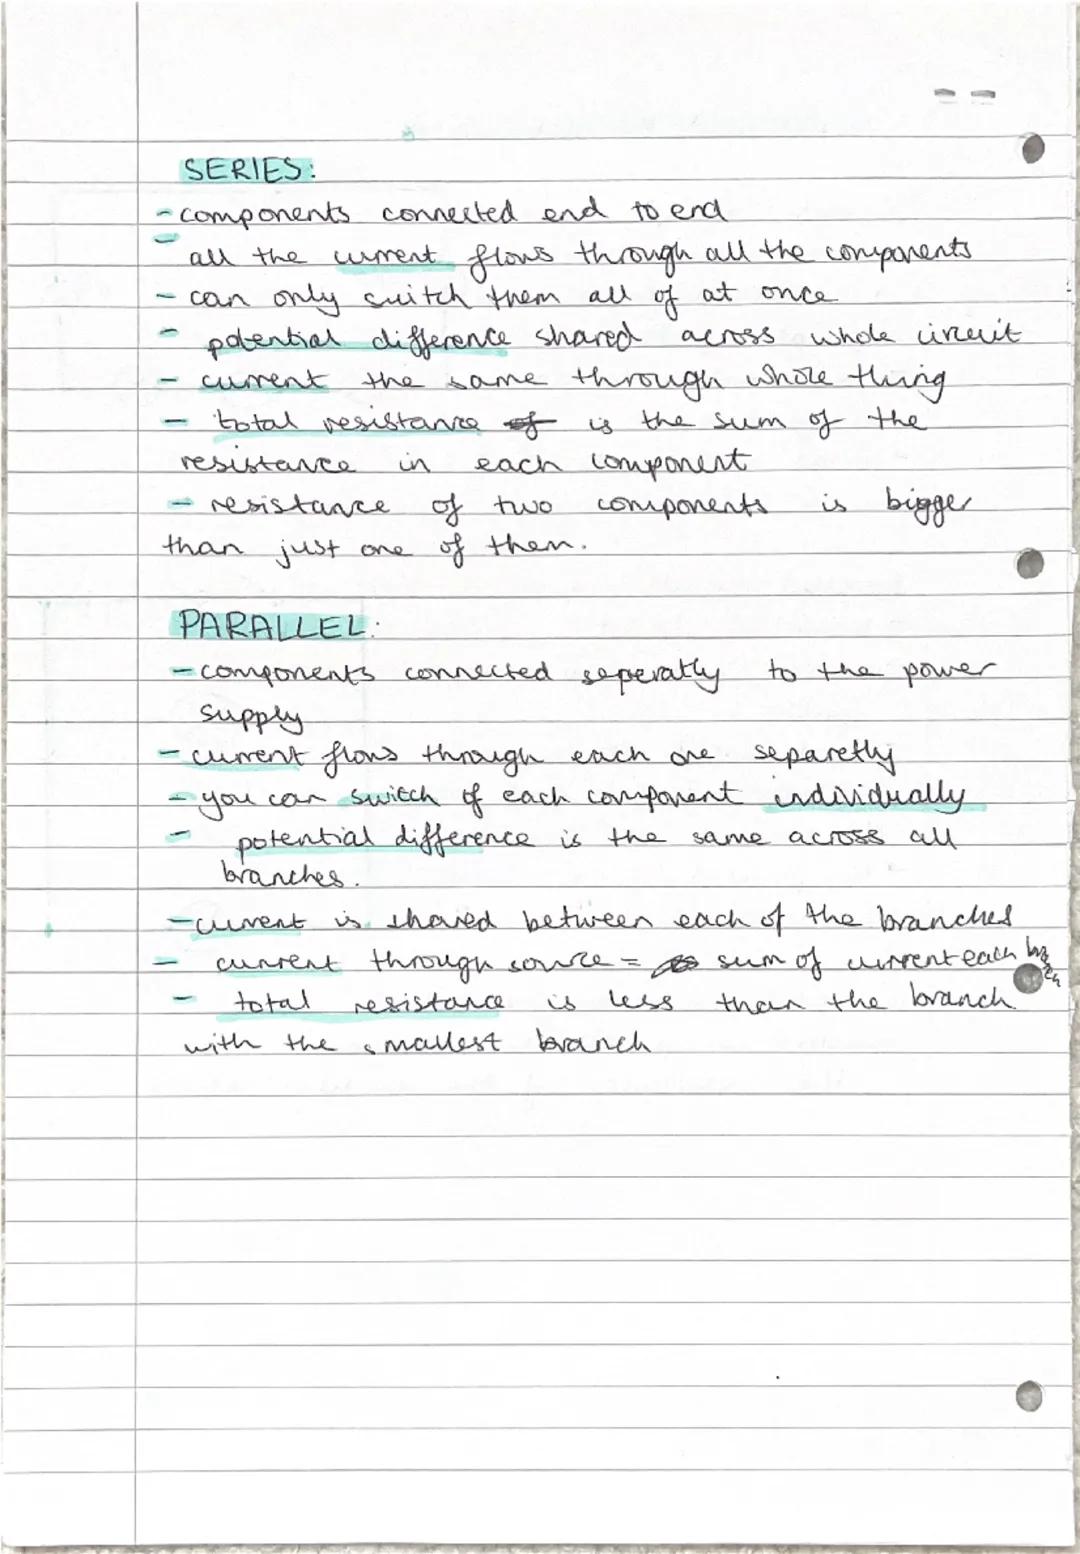 SERIES:
- components connected end to end
- all the current flows through all the components
- can only switch them all of at once
- potential difference shared across whole circuit
- current the same through whole thing
- total resistance of is the sum of the
resistance in each component
- resistance of two components is bigger
than just one of them.
PARALLEL:
- components connected seperatly to the power
supply
- current flows through each one separetly
- you can switch of each component individually
- potential difference is the same across all
branches.
- current is shared between each of the branches
- current through source = sum of current each branch
- total resistance is less than the branch
with the smallest branch